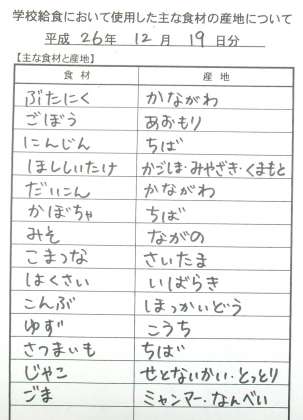 学校給食において使用した主な食材の産地について
平成 26年 12月 19日分
【主な食材と産地】
食材 産地
ぶたにく かながわ
ごぼう あおもり
にんじん ちば
ほししいたけ かごしま・みやざき・くまもと
だいこん かながわ
かぼちゃ ちば
みそ ながの
こまつな さいたま
はくさい いばらき
こんぶ ほっかいどう
ゆず こうち
さつまいも ちば
じゃこ せとないかい・とっとり
ごま ミャンマー・なんべい